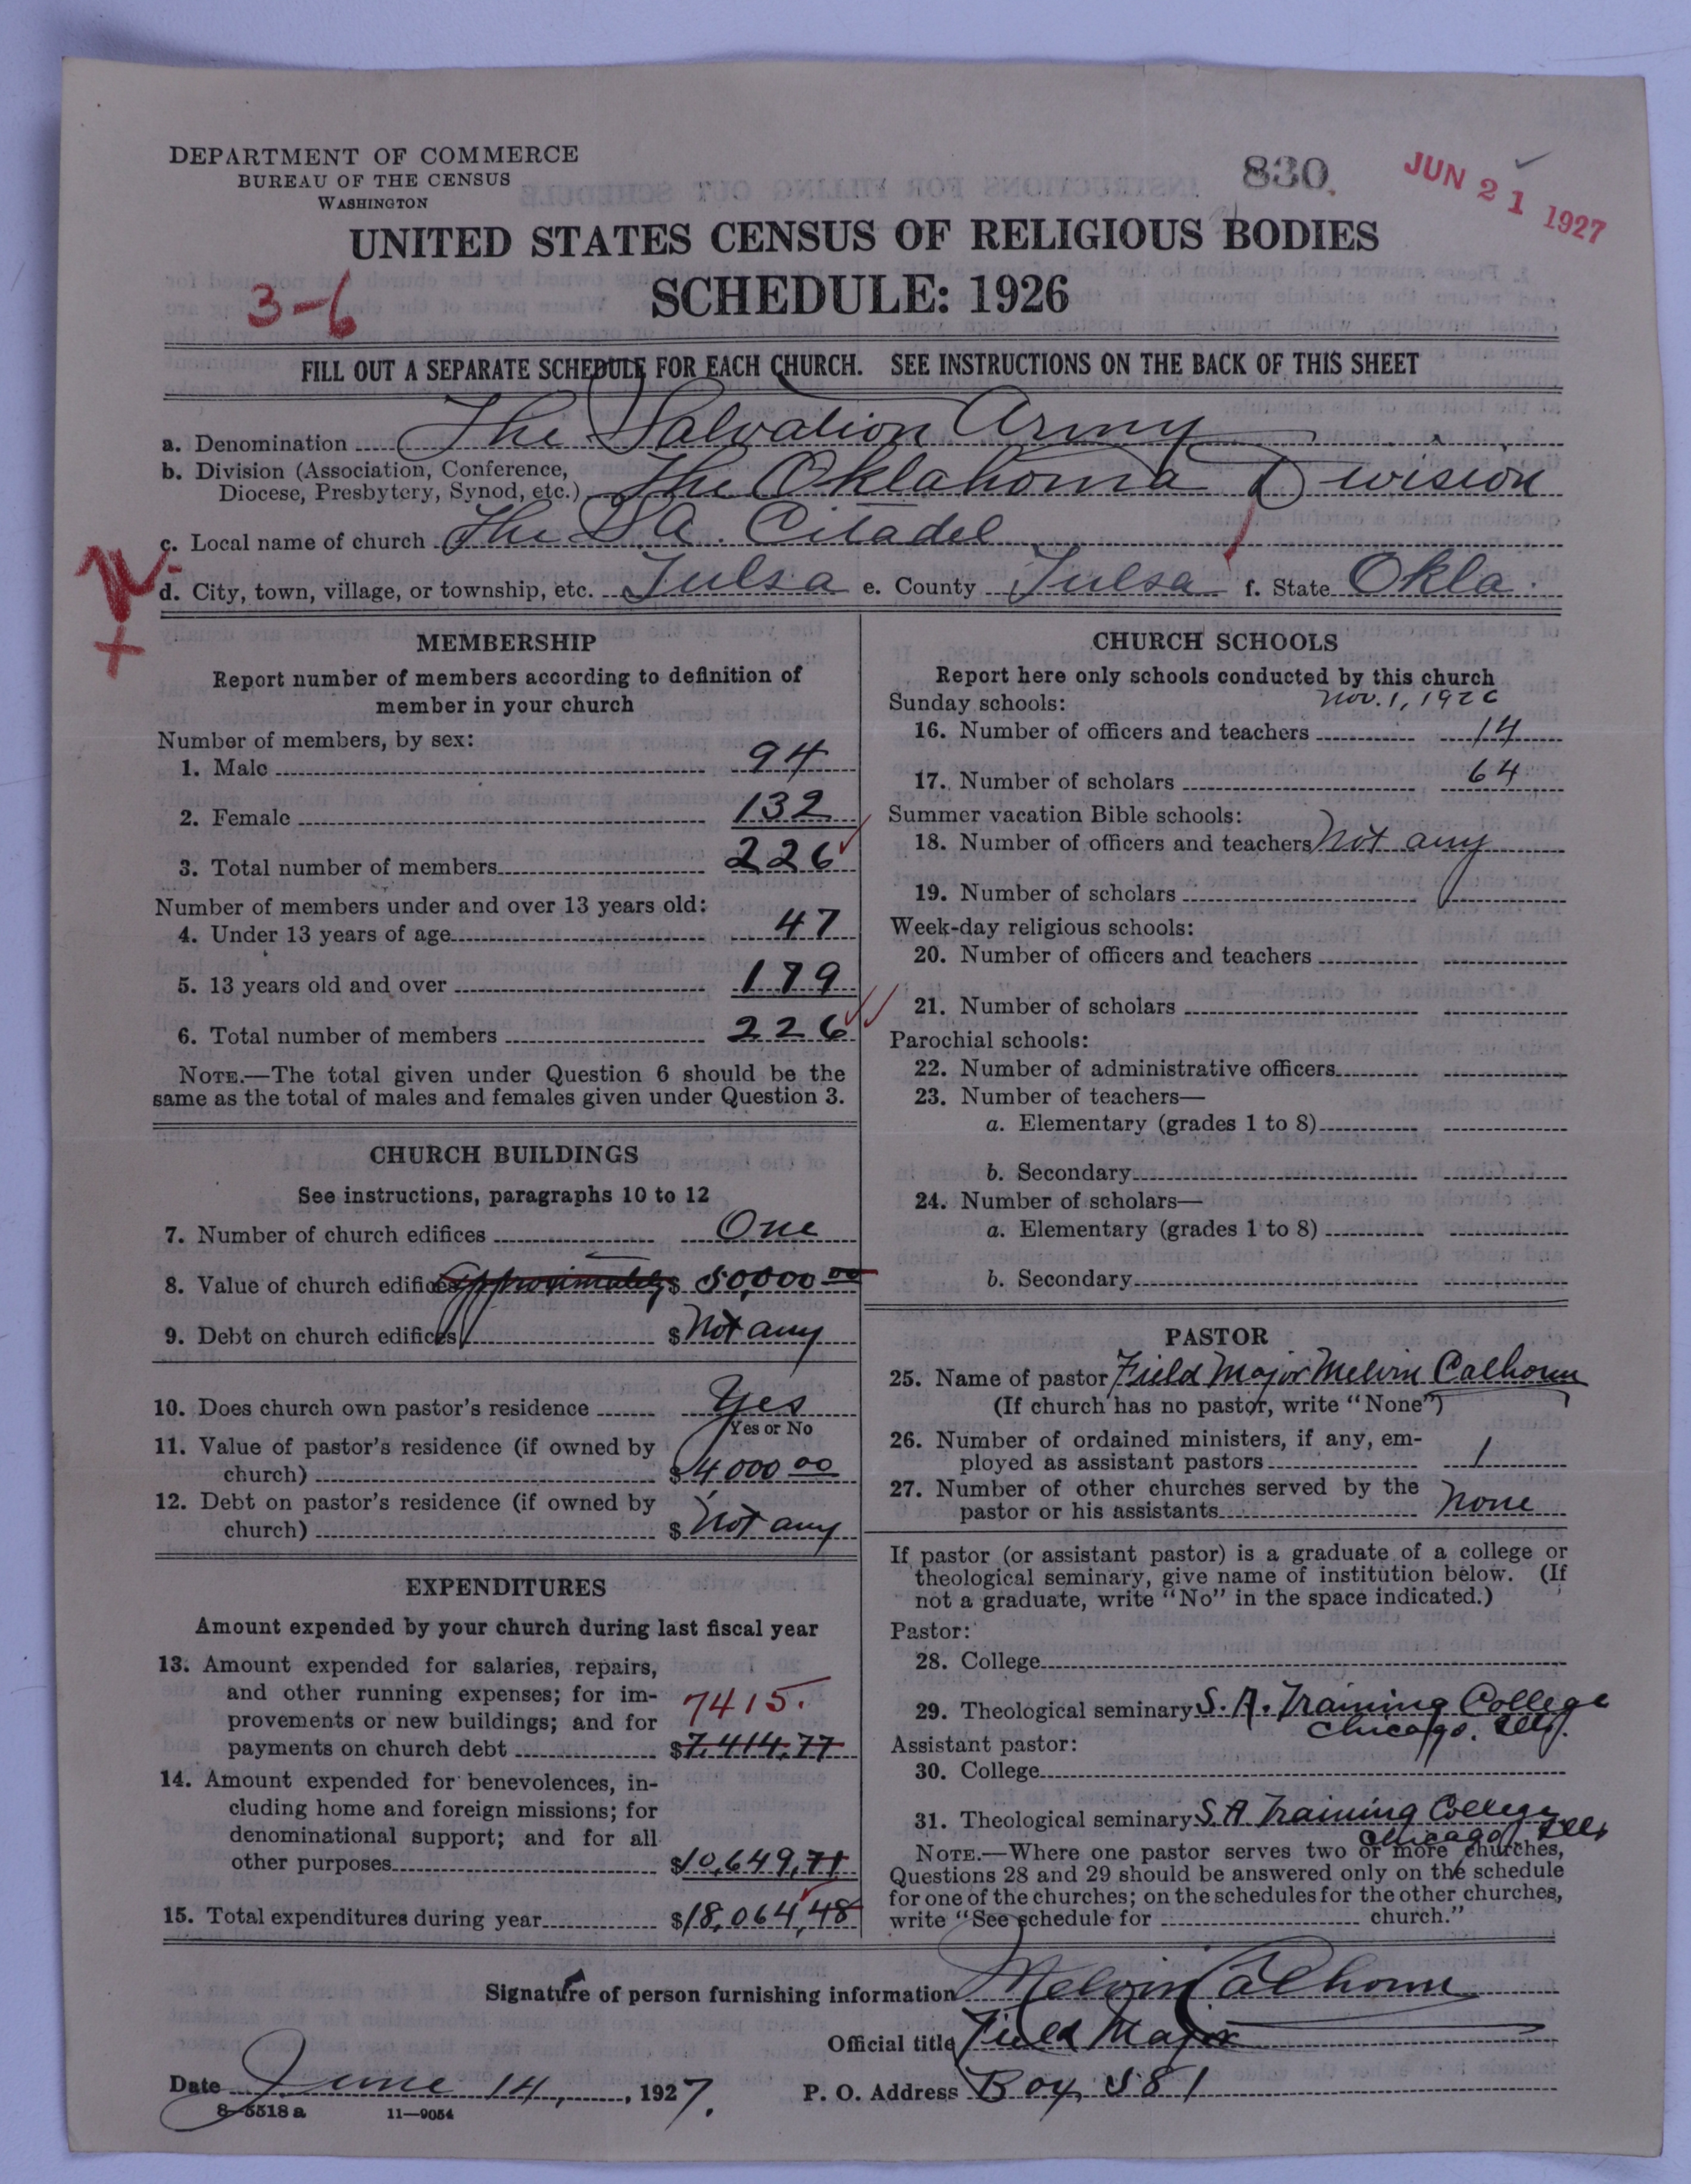 DEPARTMENT OF COMMERCE
BUREAU OF THE CENSUS
WASHINGTON
830
JUN 21 1927
UNITED STATES CENSUS OF RELIGIOUS BODIES
SCHEDULE: 1926
3-6
FILL OUT A SEPARATE SCHEDULE FOR EACH CHURCH. SEE INSTRUCTIONS ON THE BACK OF THIS SHEET
a. Denomination The Salvation Army
b. Division (Association, Conference,
Diocese, Presbytery, Synod, etc.) The Oklahoma Division
c. Local name of church The S A. Citadel
d. City, town, village, or township, etc. Tulsa e. County Tulsa f. State Okla.
MEMBERSHIP
Report number of members according to definition of
member in your church
Number of members, by sex:
1. Male 94
2. Female 132
3. Total number of members 226
Number of members under and over 13 years old:
4. Under 13 years of age 47
5. 13 years old and over 179
6. Total number of members 226
NOTE.—The total given under Question 6 should be the
same as the total of males and females given under Question 3.
CHURCH BUILDINGS
See instructions, paragraphs 10 to 12
7. Number of church edifices One
8. Value of church edifices Approximately $ 50,000 00
9. Debt on church edifices $ Not any
10. Does church own pastor's residence Yes
Yes or No
11. Value of pastor's residence (if owned by
church) $ 4000 00
12. Debt on pastor's residence (if owned by
church) $ Not any
EXPENDITURES
Amount expended by your church during last fiscal year
13. Amount expended for salaries, repairs,
and other running expenses; for im-
provements or new buildings; and for
7415.
payments on church debt $7,414.77
14. Amount expended for benevolences, in-
cluding home and foreign missions; for
denominational support; and for all
other purposes $10,649.71
15. Total expenditures during year $18,064.48
CHURCH SCHOOLS
Report here only schools conducted by this church
Sunday schools: Nov. 1, 1926
16. Number of officers and teachers 14
17. Number of scholars 64
Summer vacation Bible schools:
18. Number of officers and teachers Not any
19. Number of scholars
Week-day religious schools:
20. Number of officers and teachers
21. Number of scholars
Parochial schools:
22. Number of administrative officers
23. Number of teachers—
a. Elementary (grades 1 to 8)
b. Secondary
24. Number of scholars—
a. Elementary (grades 1 to 8)
b. Secondary
PASTOR
25. Name of pastor Field Major Melvin Calhoun
(If church has no pastor, write "None")
26. Number of ordained ministers, if any, em-
ployed as assistant pastors 1
27. Number of other churches served by the
pastor or his assistants None
If pastor (or assistant pastor) is a graduate of a college or
theological seminary, give name of institution below. (If
not a graduate, write "No" in the space indicated.)
Pastor:
28. College
29. Theological seminary S. A. Training College
Chicago. Ills.
Assistant pastor:
30. College
31. Theological seminary S. A Training College
Chicago, Ills
NOTE.—Where one pastor serves two or more churches,
Questions 28 and 29 should be answered only on the schedule
for one of the churches; on the schedules for the other churches,
write "See schedule for church."
Signature of person furnishing information Melvin Calhoun
Official title Field Major
Date June 14, 1927. P. O. Address Box 581
8-5518 a 11-9054